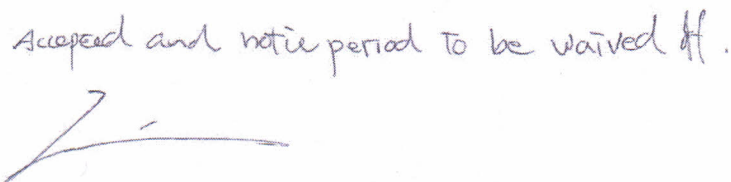 Accepted and notice period to be waived off.